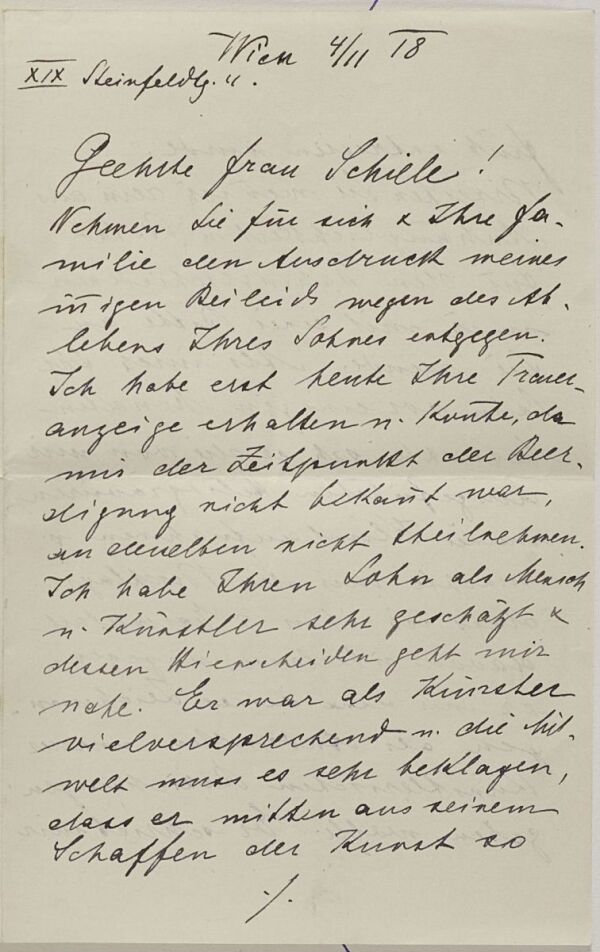 Wien 4/11 18
XIX Steinfeldg. 11.
Geehrte Frau Schiele!
Nehmen Sie für sich & Ihre Fa-
milie den Ausdruck meines
iñigen Beileids wegen des Ab-
lebens Ihres Sohnes entgegen.
Ich habe erst heute Ihre Trauer-
anzeige erhalten u. koñte, da
mir der Zeitpunkt der Beer-
digung nicht bekañt war,
an derselben nicht theilnehmen.
Ich habe Ihren Sohn als Mensch
u. Künstler sehr geschätzt &
dessen Hinscheiden geht mir
nahe. Er war als Künstler
vielversprechend u. die Mit-
welt muss es sehr beklagen,
dass er mitten aus seinem
Schaffen der Kunst so
./.